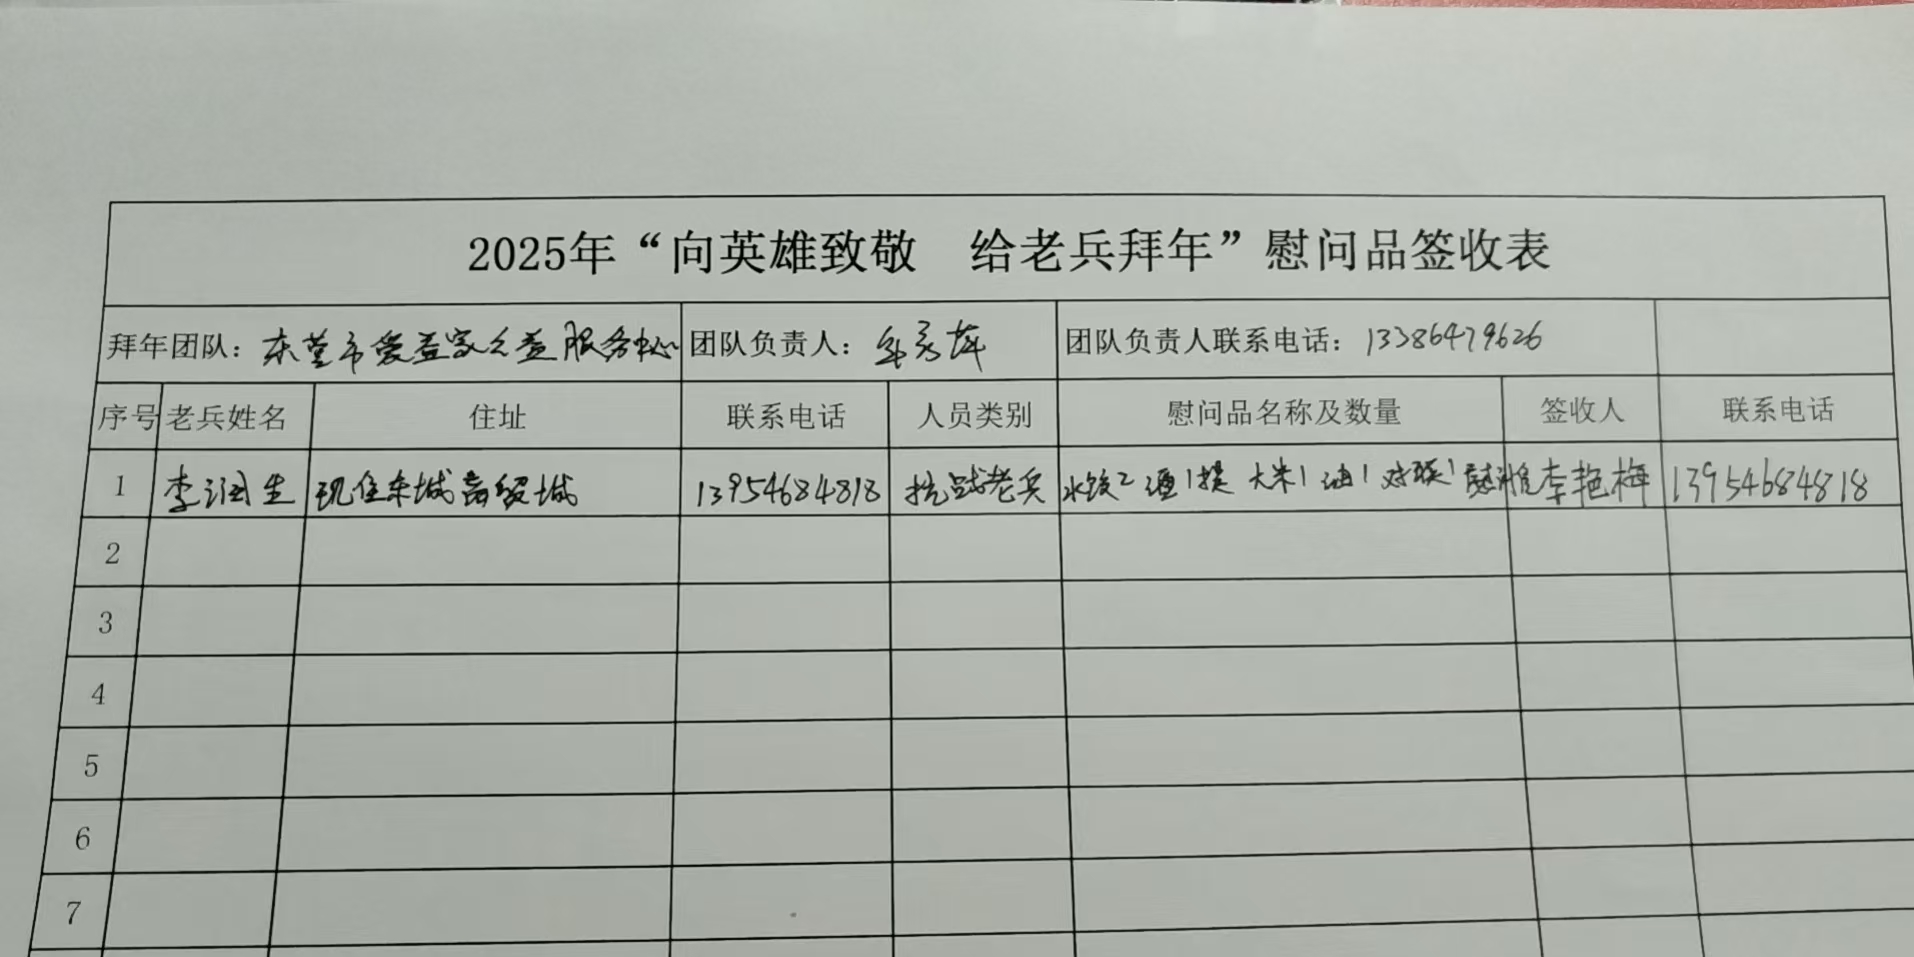 2025年“向英雄致敬 给老兵拜年”慰问品签收表
拜年团队：东营市爱益家公益服务中心 团队负责人：牟秀萍 团队负责人联系电话：13386479626
序号 老兵姓名 住址 联系电话 人员类别 慰问品名称及数量 签收人 联系电话
1 李润生 现住东城商贸城 13954684818 抗战老兵 水饺2 酒1提 大米1 油1 对联1 李艳梅 13954684818
2
3
4
5
6
7